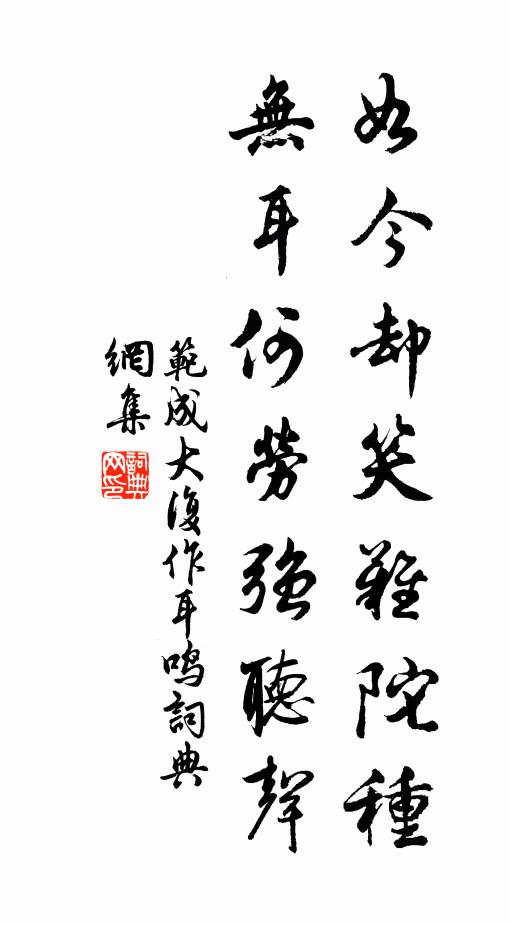 如今却笑難陀種
無耳何勞強聽聲
範成大復作耳鳴詞典
網集
詞典
網印